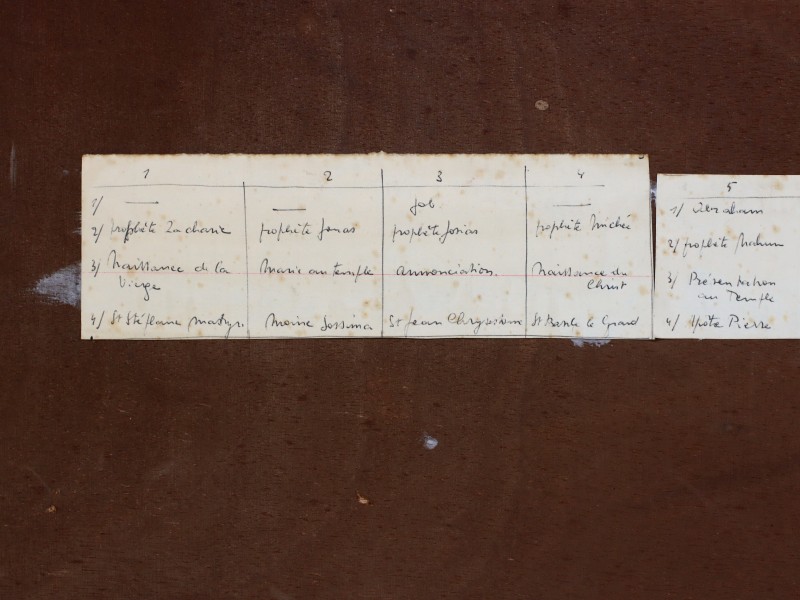 1 2 3 4 5
1/ — — Job — 1/ Abraham
2/ prophète Zacharie prophète Jonas prophète Josias prophète Michée 2/ prophète Nahum
3/ Naissance de la Marie au temple Annonciation. Naissance du 3/ Présentation
Vierge Christ au Temple
4/ St Stéphane martyr. Moine Sossima St Jean Chrysostome St Basile le Grand 4/ Pierre